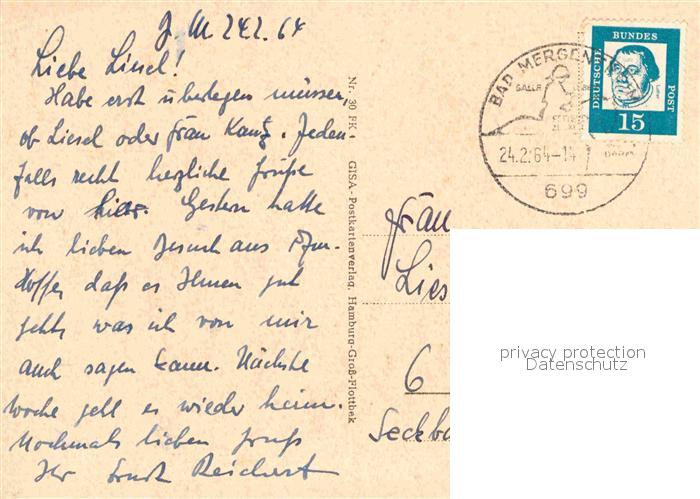 24.2.64
Liebe Liesel!
Habe erst überlegen müssen,
ob Liesel oder Frau Kanz. Jeden-
falls recht herzliche Grüße
von hier. Gestern hatte
ich lieben Besuch aus
hoffe, daß es Ihnen gut
geht, was ich von mir
auch sagen kann. Nächste
Woche geht es wieder heim.
Nochmals lieben Gruß
Ihr Ernst Reichert
Nr. 30 FK • GISA-Postkartenverlag, Hamburg-Groß-Flottbek
BAD MERGENTHEIM
24.2.64-14
699
DEUTSCHE BUNDES POST
15
Frau
Lies
6
Seckba
privacy protection
Datenschutz